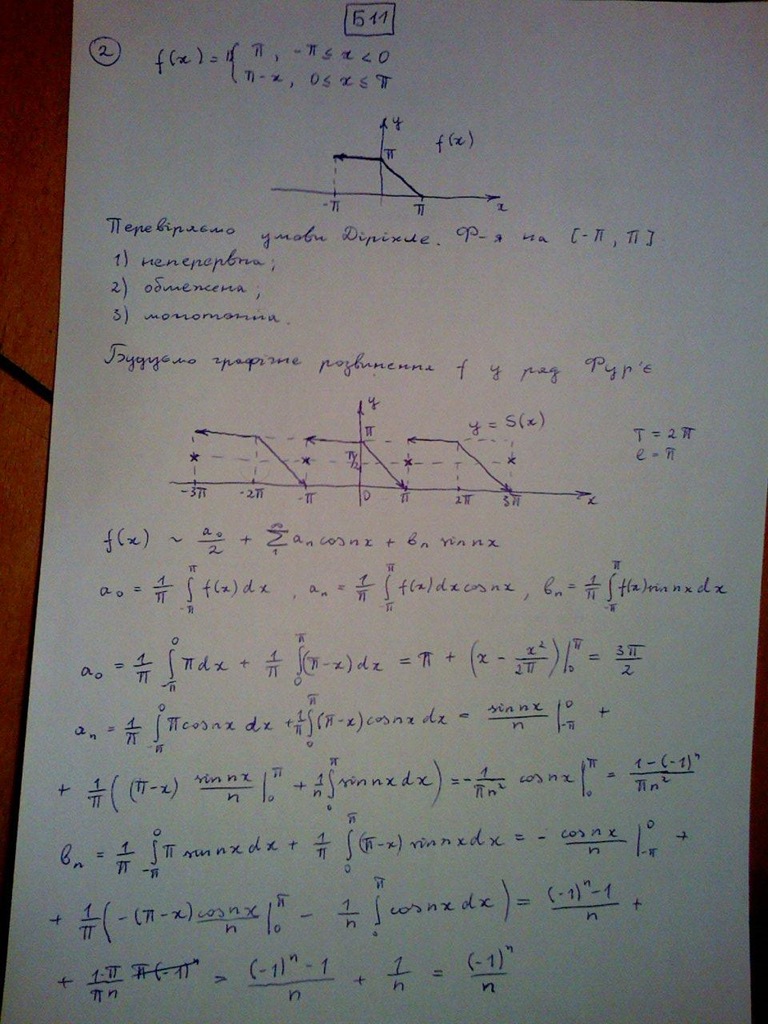 Б11
② f(x) = { π, -π ≤ x < 0
π-x, 0 ≤ x ≤ π
y
π f(x)
-π π x
Перевіряємо умови Діріхле. Ф-я на [-π, π]
1) неперервна;
2) обмежена;
3) монотонна.
Будуємо графічне розвинення f у ряд Фур'є
y
π y = S(x) T = 2π
π/2 e = π
-3π -2π -π 0 π 2π 3π x
f(x) ~ a₀/2 + ∞Σ1 aₙ cos nx + bₙ sin nx
a₀ = 1/π ∫_{-π}^{π} f(x) dx , aₙ = 1/π ∫_{-π}^{π} f(x) dx cos nx , bₙ = 1/π ∫_{-π}^{π} f(x) sin nx dx
a₀ = 1/π ∫_{-π}^{0} π dx + 1/π ∫_{0}^{π} (π-x) dx = π + (x - x²/2π)|_{0}^{π} = 3π/2
aₙ = 1/π ∫_{-π}^{0} π cos nx dx + 1/π ∫_{0}^{π} (π-x) cos nx dx = sin nx/n |_{-π}^{0} +
+ 1/π ( (π-x) sin nx/n |_{0}^{π} + 1/n ∫_{0}^{π} sin nx dx ) = - 1/πn² cos nx |_{0}^{π} = 1-(-1)ⁿ/πn²
bₙ = 1/π ∫_{-π}^{0} π sin nx dx + 1/π ∫_{0}^{π} (π-x) sin nx dx = - cos nx/n |_{-π}^{0} +
+ 1/π ( -(π-x) cos nx/n |_{0}^{π} - 1/n ∫_{0}^{π} cos nx dx ) = (-1)ⁿ-1/n +
+ 1·π/πn = (-1)ⁿ-1/n + 1/n = (-1)ⁿ/n